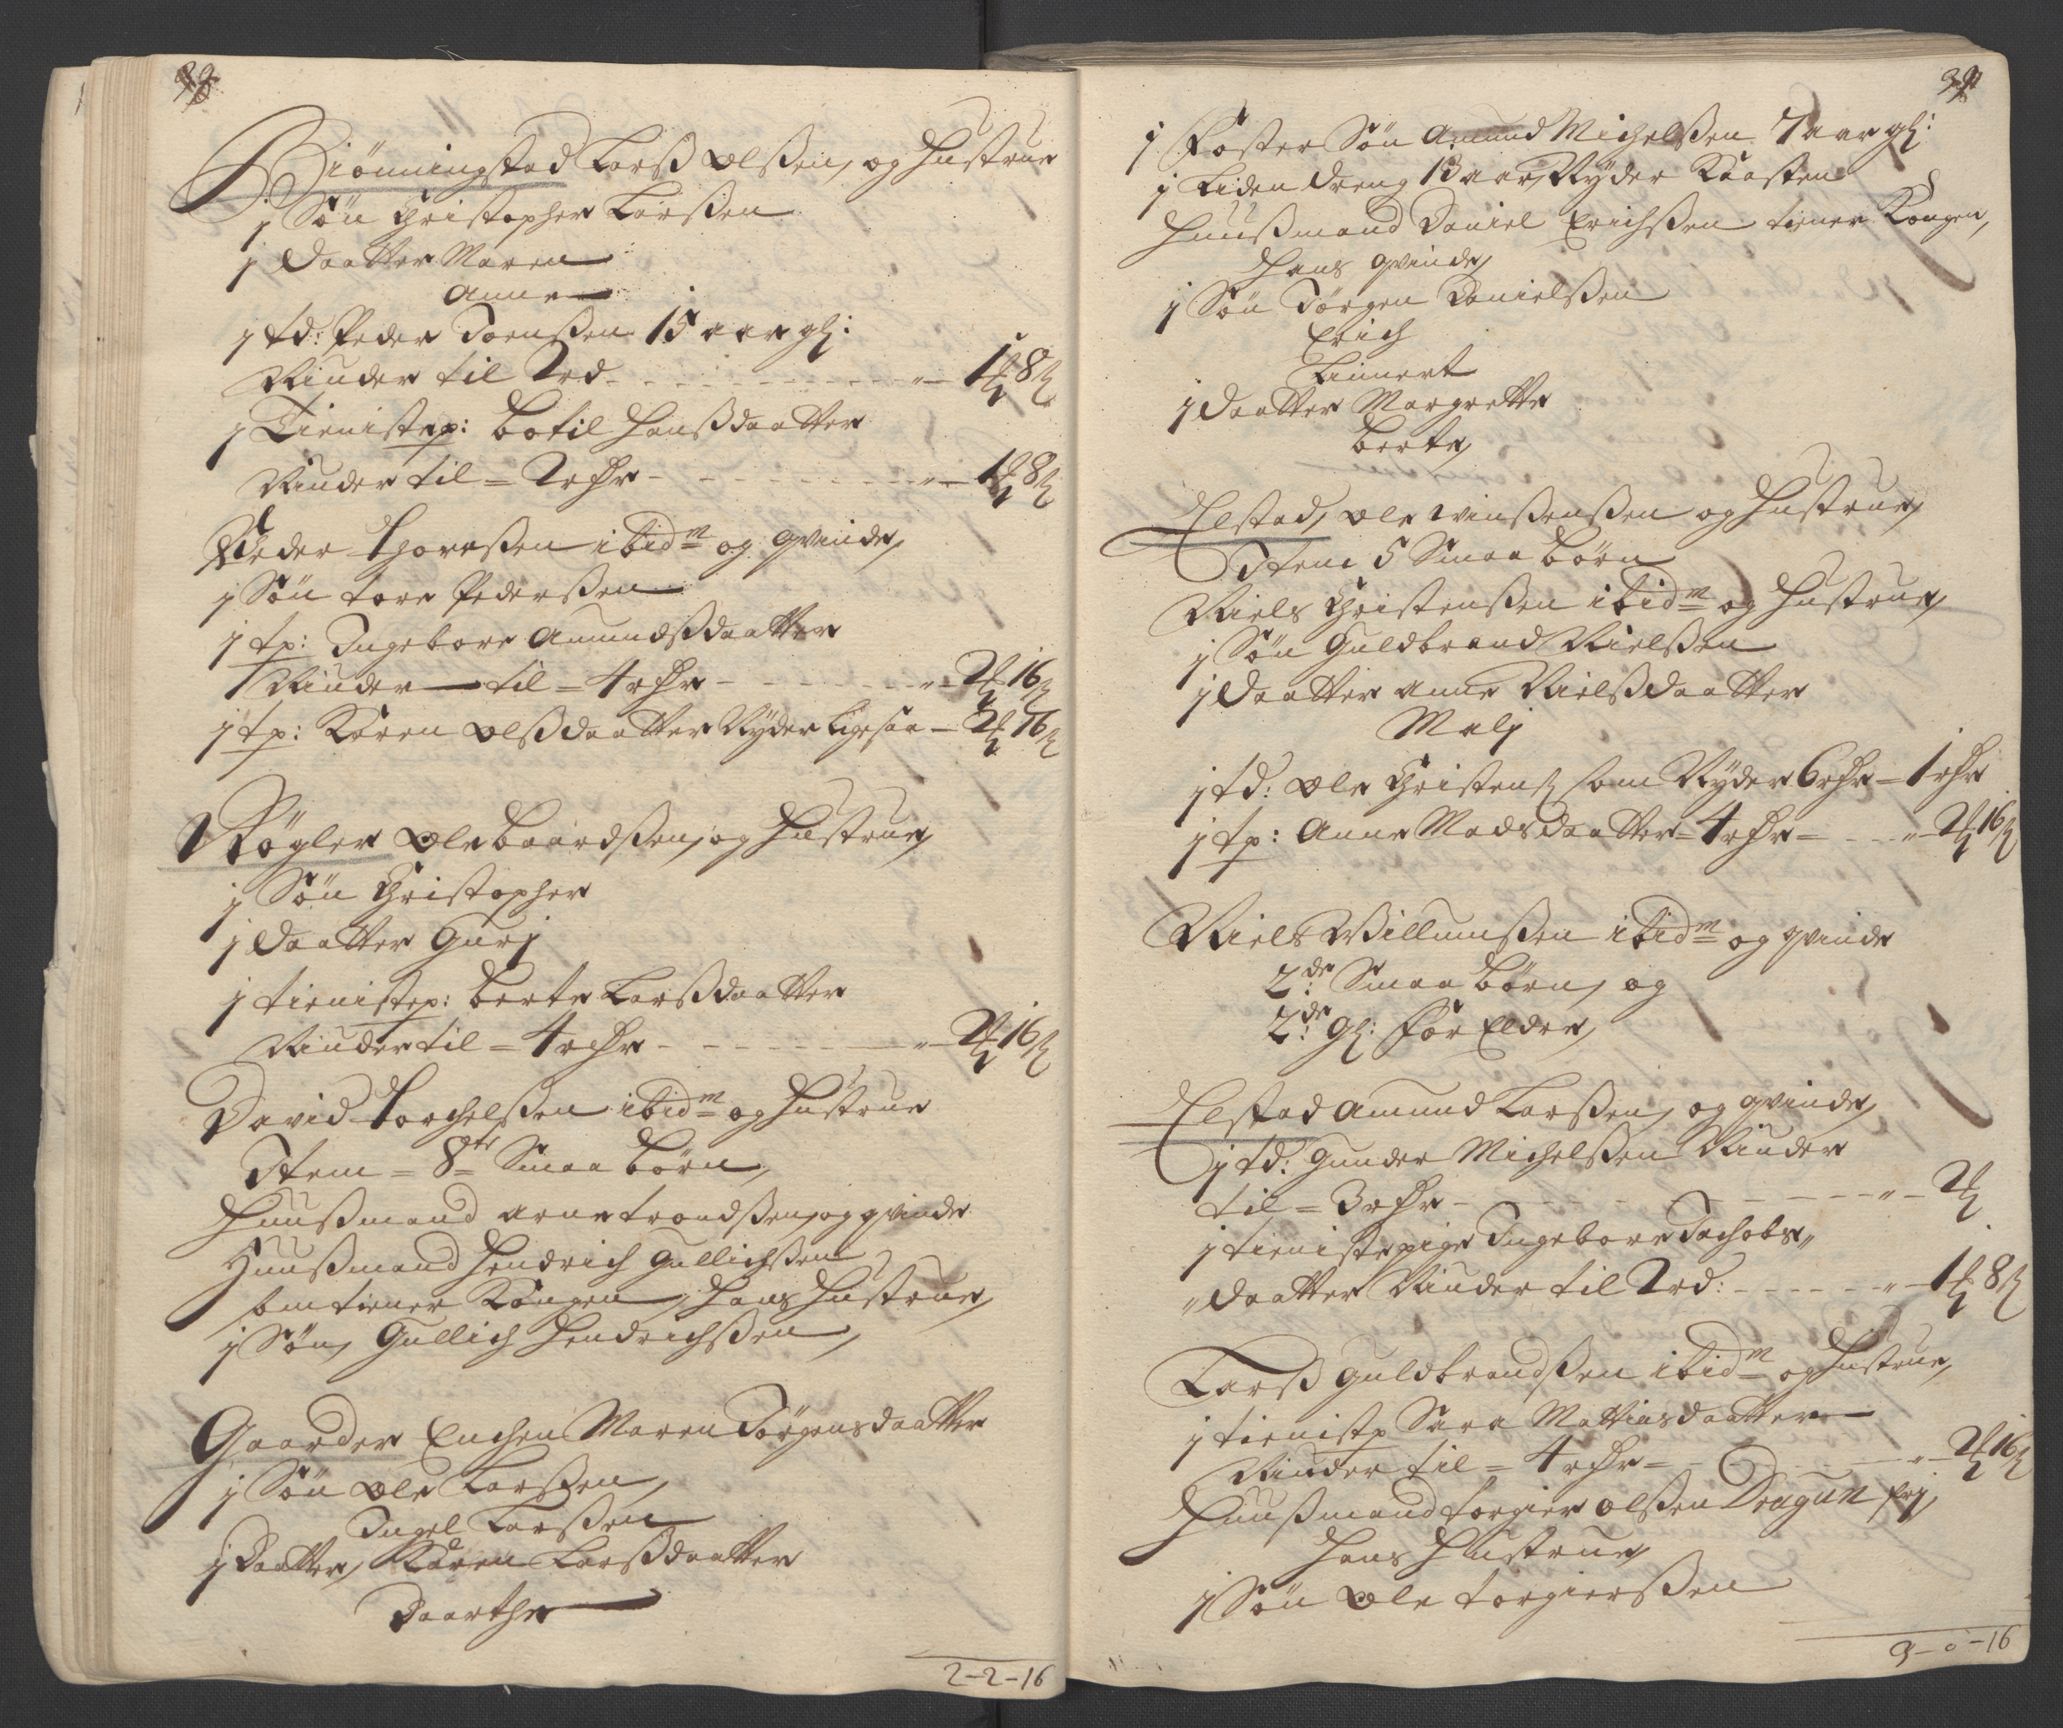 Biönningstad Larß Olßen, og Hustrue
j Sön Christopher Larßen
j Daatter Maren
Anne
j td: Peder Joenßen 15 aar gl:
Niuder til 2rd - - - " - 1 8
j Tieniste p: Botil Hanßdaatter
Niuder til = 2 rdr - - - " - 1 8
Peder Thoreßen ibidm og qvinde,
j Sön tore Pederßen
j tp: Ingebore Amundßdaatter
Niuder til = 4 rdr - - - " - 2 16
j tp: Karen Olßdaatter Nyder Ligesaa - 2 16
Nögler Ole Baardßen, og Hustrue,
j Sön Christopher
j Daatter Gurj
j tieniste p: Berte Larßdaatter
Niuder til = 4 rdr - - - " - 2 16
David Torchelßen ibidm og Hustrue
Item = 8te Smaa börn,
Huußmand Arne trondßen, og qvinde
Huußmand Hendrich Gullichßen
som tiener Kongen, Hans Hustrue,
j Sön, Gullich Hendrichßen,
Gaarder Enchen Maren Jörgensdaatter
j Sön Ole Larßen,
Ingel Larßen
j Daatter, Karen Larßdaatter
Daarthe
2-2-16
j Foster Sön Amund Michelßen 7 aar gl:
j Liden dreng 13 aar, Nyder Kaasten
Huußmand Daniel Erichßen tiener Kongen,
Hans qvinde,
j Sön Jörgen Danielßen
Erich
Linnert
j Daatter Margrette
Berte,
Elstad, Ole winßenßen og Hustrue,
Item 5 Smaa börn
Niels Christenßen ibidm og Hustrue,
j Sön Guldbrand Nielßen
j Daatter Anne Nielßdaatter
Malj
j td: Ole Christenß som Nyder 6 rdr - 1 rdr
j tp: Anne Madsdaatter - 4 rdr - - - " - 2 16
Niels Willumßen ibidm og qvinde
2de Smaa börn, og
2de gl: Forældre,
Elstad Amund Larßen, og qvinde,
j td: Gunder Michelßen Niuder
til = 3 rdr - - - " - 2
j tieniste pige Ingebore Jachobs"
"daatter Niuder til 2rd: - - - " - 1 8
Larß Guldbrandßen ibidm og Hustrue,
j tienist p Sara Mattiasdaatter
Niuder til = 4 rdr = - - - " - 2 16
Huußmand Torgier Olßen Dragun frj,
Hans Hustrue,
j Sön Ole Torgierßen
-16